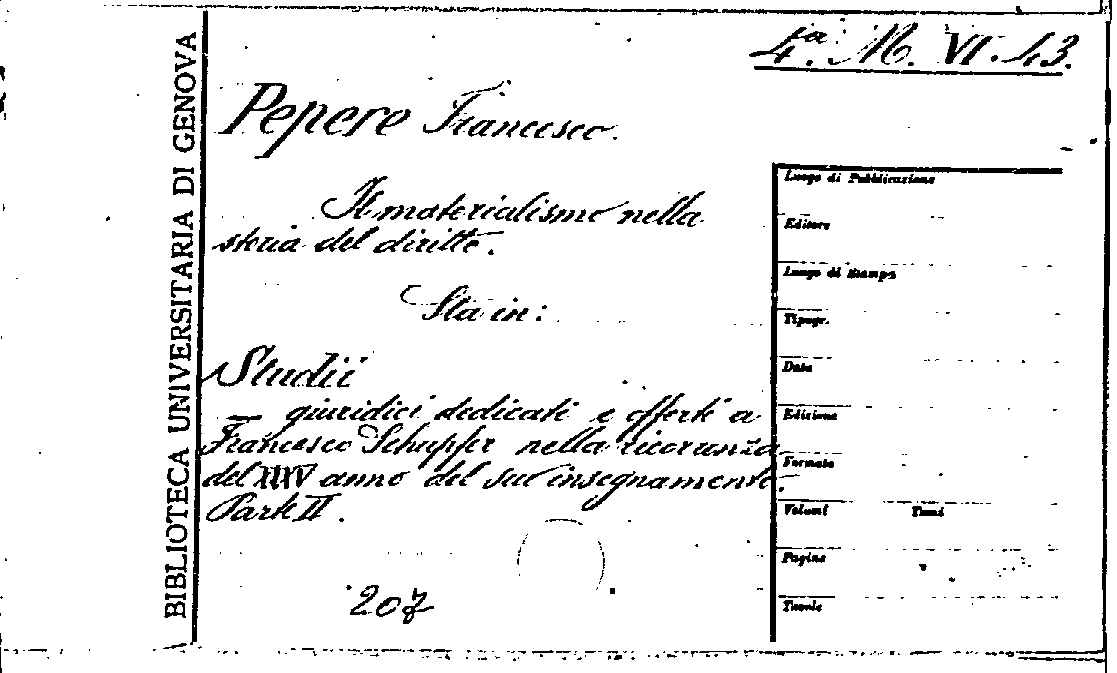 4.a M. VI. 43.
BIBLIOTECA UNIVERSITARIA DI GENOVA
Pepere Francesco.
Il materialismo nella
storia del diritto.
Sta in:
Studii
giuridici dedicati e offerti a
Francesco Schupfer nella ricorrenza
del XXXV anno del suo insegnamento.
Parte II.
207
Luogo di Pubblicazione
Editore
Luogo di Stampa
Tipogr.
Data
Edizione
Formato
Volumi Tomi
Pagine
Tavole